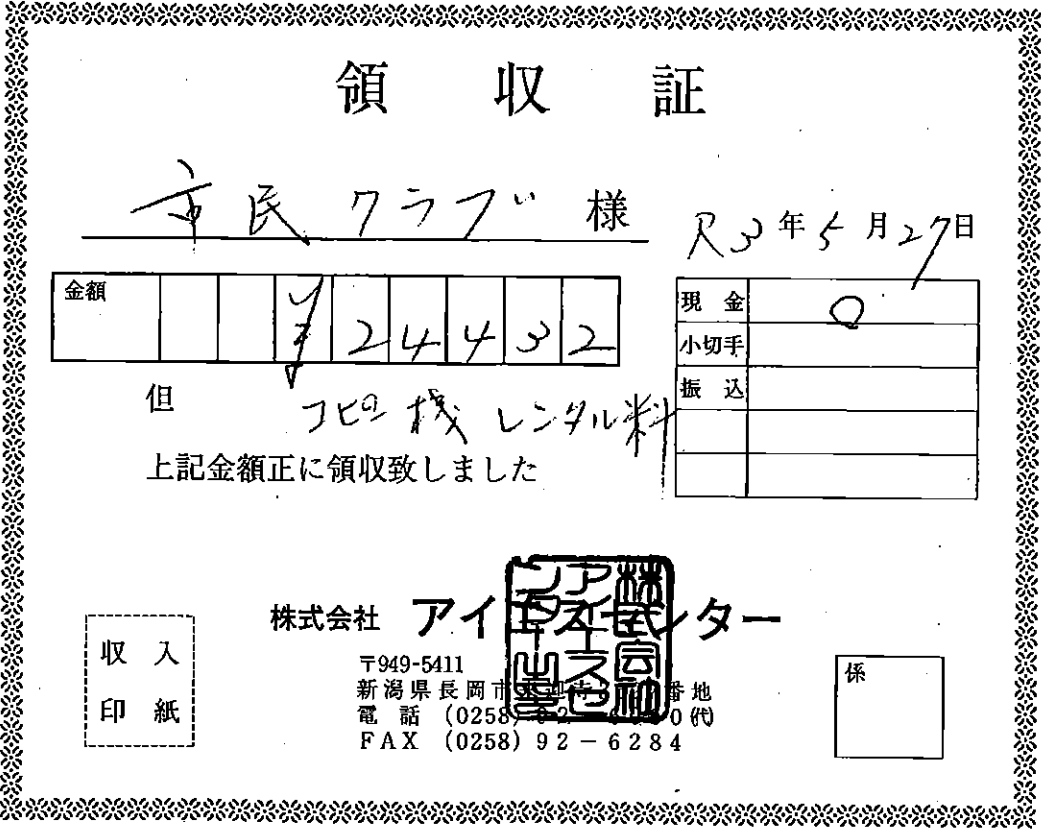 領収証
市民クラブ 様
R3年5月27日
金額 ¥24432
現金 ○
小切手
振込
但 コピー機 レンタル料
上記金額正に領収致しました
収入
印紙
株式会社 アイ センター
〒949-5411
新潟県長岡市 番地
電話 (0258) (代)
FAX (0258) 92-6284
係